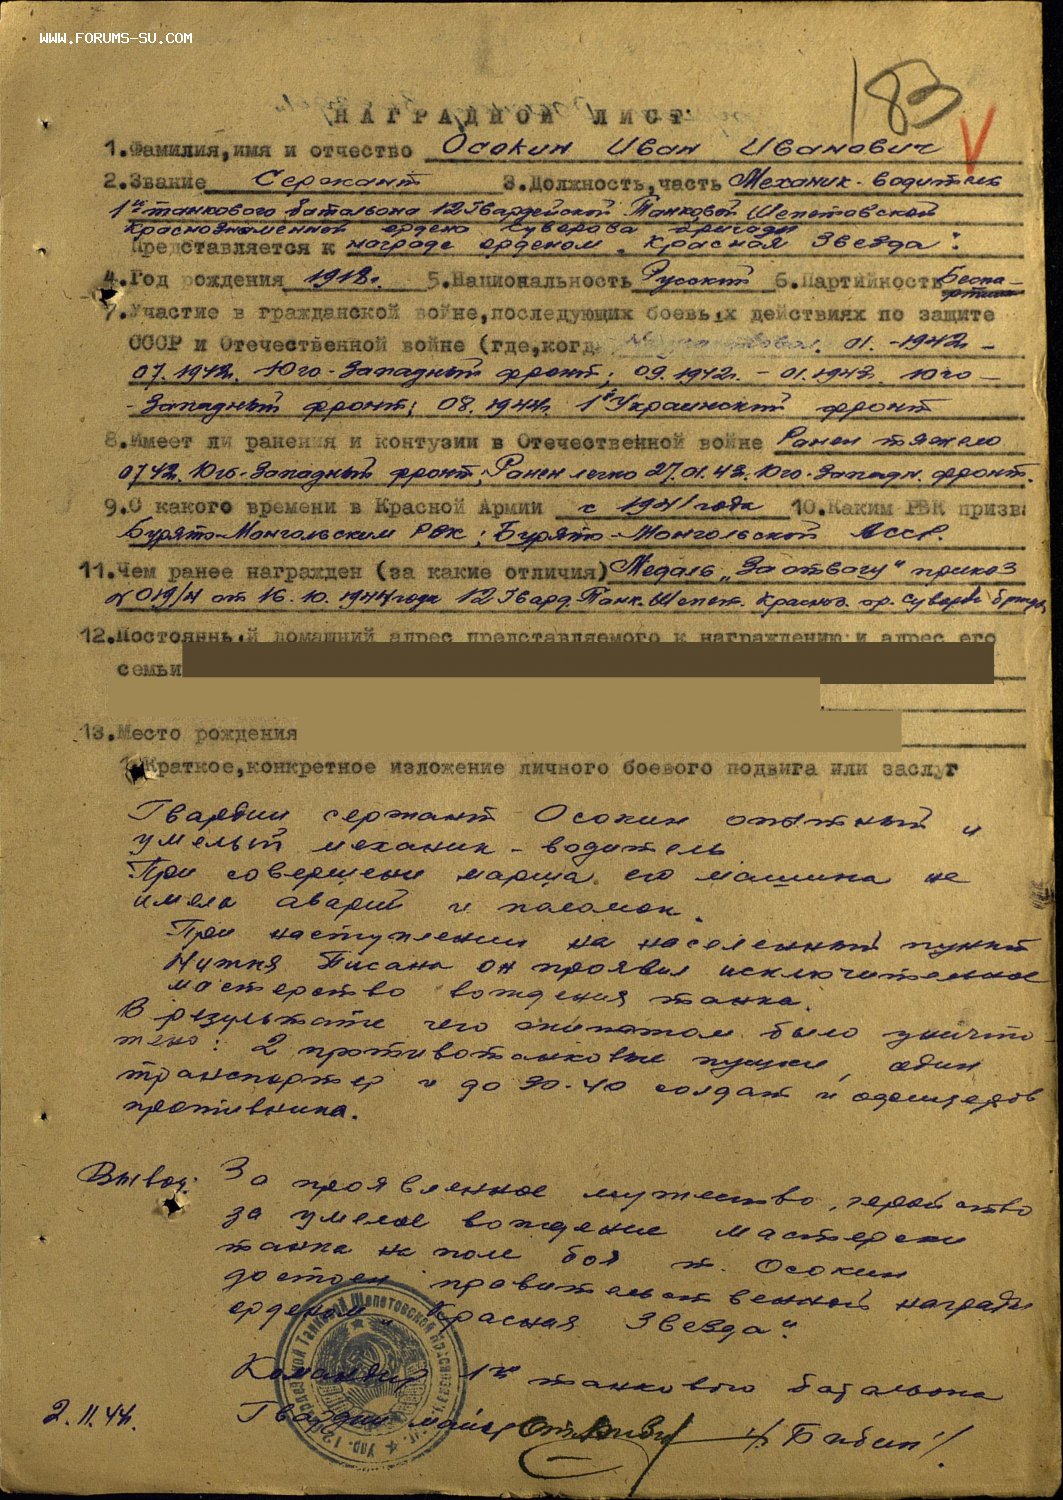 WWW.FORUMS-SU.COM
183
V
НАГРАДНОЙ ЛИСТ
1.Фамилия,имя и отчество Осокин Иван Иванович
2.Звание Сержант 3.Должность,часть Механик-водитель
1го танкового батальона 12 Гвардейской Танковой Шепетовской
Краснознаменной ордена Суворова бригады
Представляется к награде орденом „Красная Звезда".
4.Год рождения 1918г. 5.Национальность Русский 6.Партийность Беспа-
ртийн
7.Участие в гражданской войне,последующих боевых действиях по защите
СССР и Отечественной войне (где,когд 01.-1942г-
07.1942г. Юго-Западный фронт; 09.1942г.-01.1943г. Юго-
-Западный фронт; 08.1944г. 1й Украинский фронт
8.Имеет ли ранения и контузии в Отечественной войне Ранен тяжело
07.42г. Юго-Западный фронт; Ранен легко 27.01.43г. Юго-Западн. фронт.
9.С какого времени в Красной Армии с 1941 года 10.Каким РВК призва
Бурято-Монгольским РВК; Бурято-Монгольской АССР.
11.Чем ранее награжден (за какие отличия) Медаль „За отвагу" приказ
№019/н от 16.10.1944 года 12 Гвард. Танк. Шепет. Красноз. ор. Суворова бригады
12.Постоянный домашний адрес представляемого к награждению и адрес его
семьи
13.Место рождения
Краткое,конкретное изложение личного боевого подвига или заслуг
Гвардии сержант Осокин опытный и
умелый механик-водитель
При совершени марша его машина не
имела аварий и паломок.
При наступлении на населенный пункт
Писана он проявил исключительное
мастерство вождения танка.
В результате чего экипажом было уничто-
жено: 2 противотанковые пушки, один
транспортер и до 30-40 солдат и офицеров
противника.
Вывод: За проявленное мужество, геройство
за умелое вождение мастерски
танка на поле боя т. Осокин
достоен правительственной награды
орденом „Красная Звезда".
Командир 1го танкового батальона
Гвардии майор /Бабин/
2.11.44г.